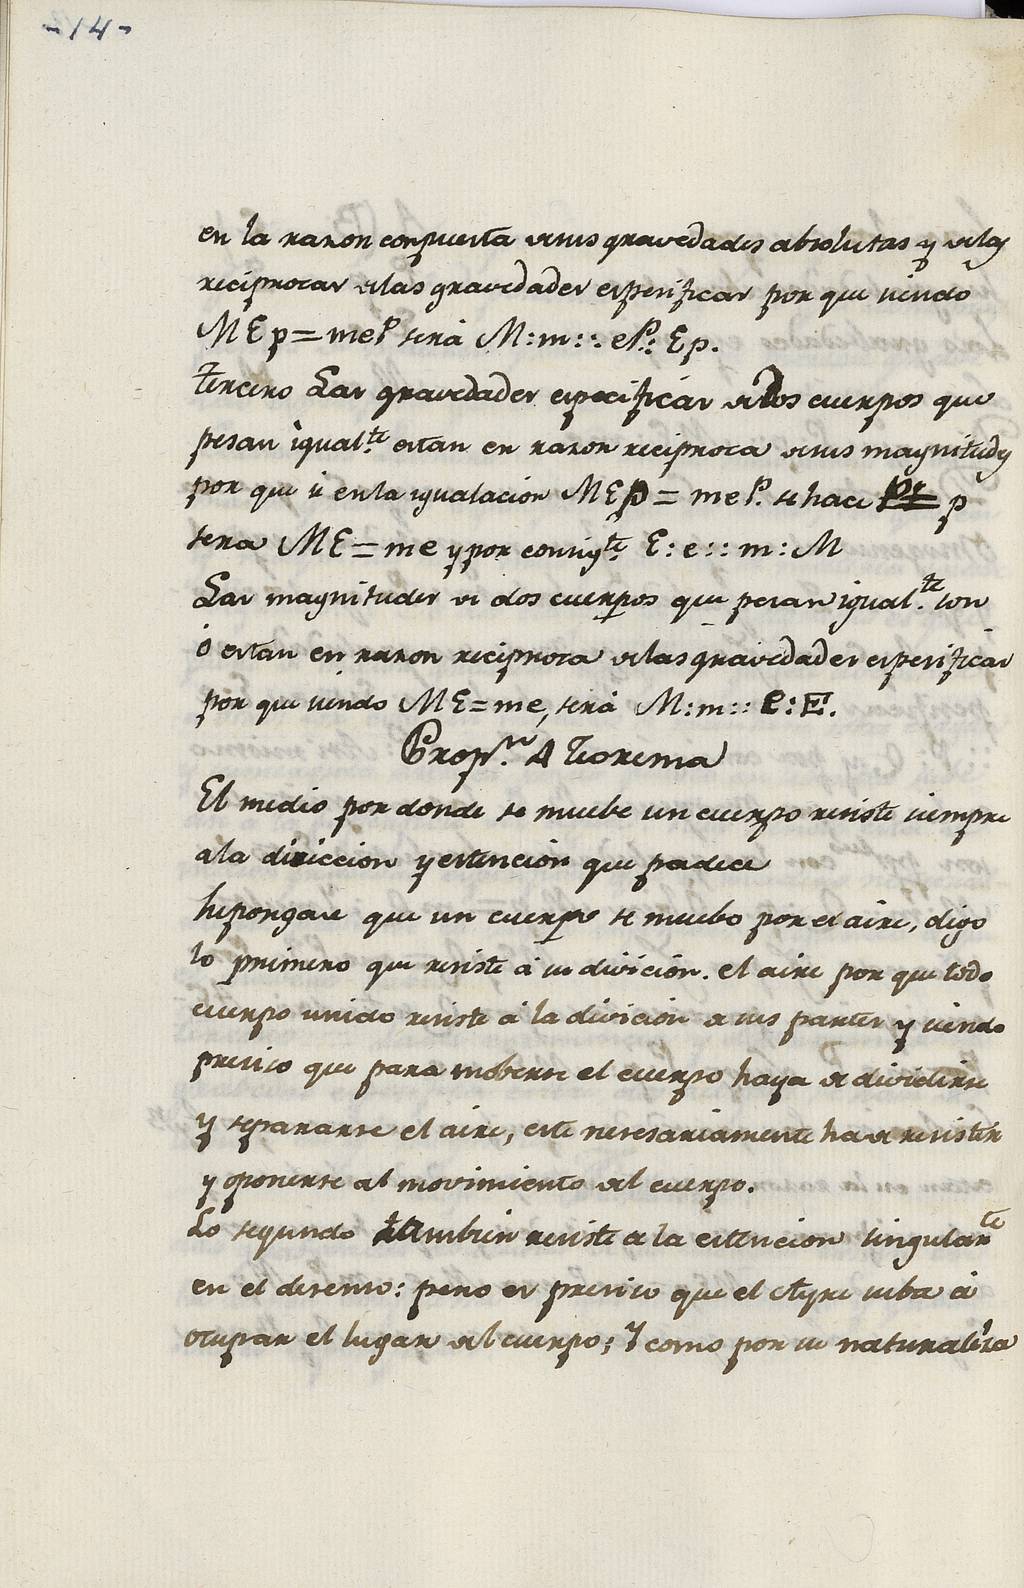 -14-
en la razon compuesta de sus gravedades absolutas y de las
reciprocas de las gravedades esperificas por que siendo
MEp=meP será M:m::eP:Ep.
tercero Las gravedades especificas de dos cuerpos que
pesan igual.te estan en razon reciproca de sus magnitudes
por que si en la igualacion MEp=meP. se hace P= p
sera ME=me y por consig.te E:e::m:M
Las magnitudes de dos cuerpos que pesan igual.te son
ó estan en razon reciproca de las gravedades esperificas
por que siendo ME=me, será M:m::e:E.
Prop.n 4 Teorema
El medio por donde se muebe un cuerpo resiste siempre
a la direccion y estencion que padece
Supongase que un cuerpo se muebo por el aire, digo
lo primero que resiste á su divición. el aire por que todo
cuerpo unido resiste á la divición de sus partes y siendo
presiso que para moberse el cuerpo haya de dividirse
y separarse el aire, este neresariamente ha de resistir
y oponerse al movimiento del cuerpo.
Lo segundo tambien resiste a la estencion singularte
en el desenso: pero es presiso que el Ayre suba á
ocupar el lugar del cuerpo; Y como por su naturaleza